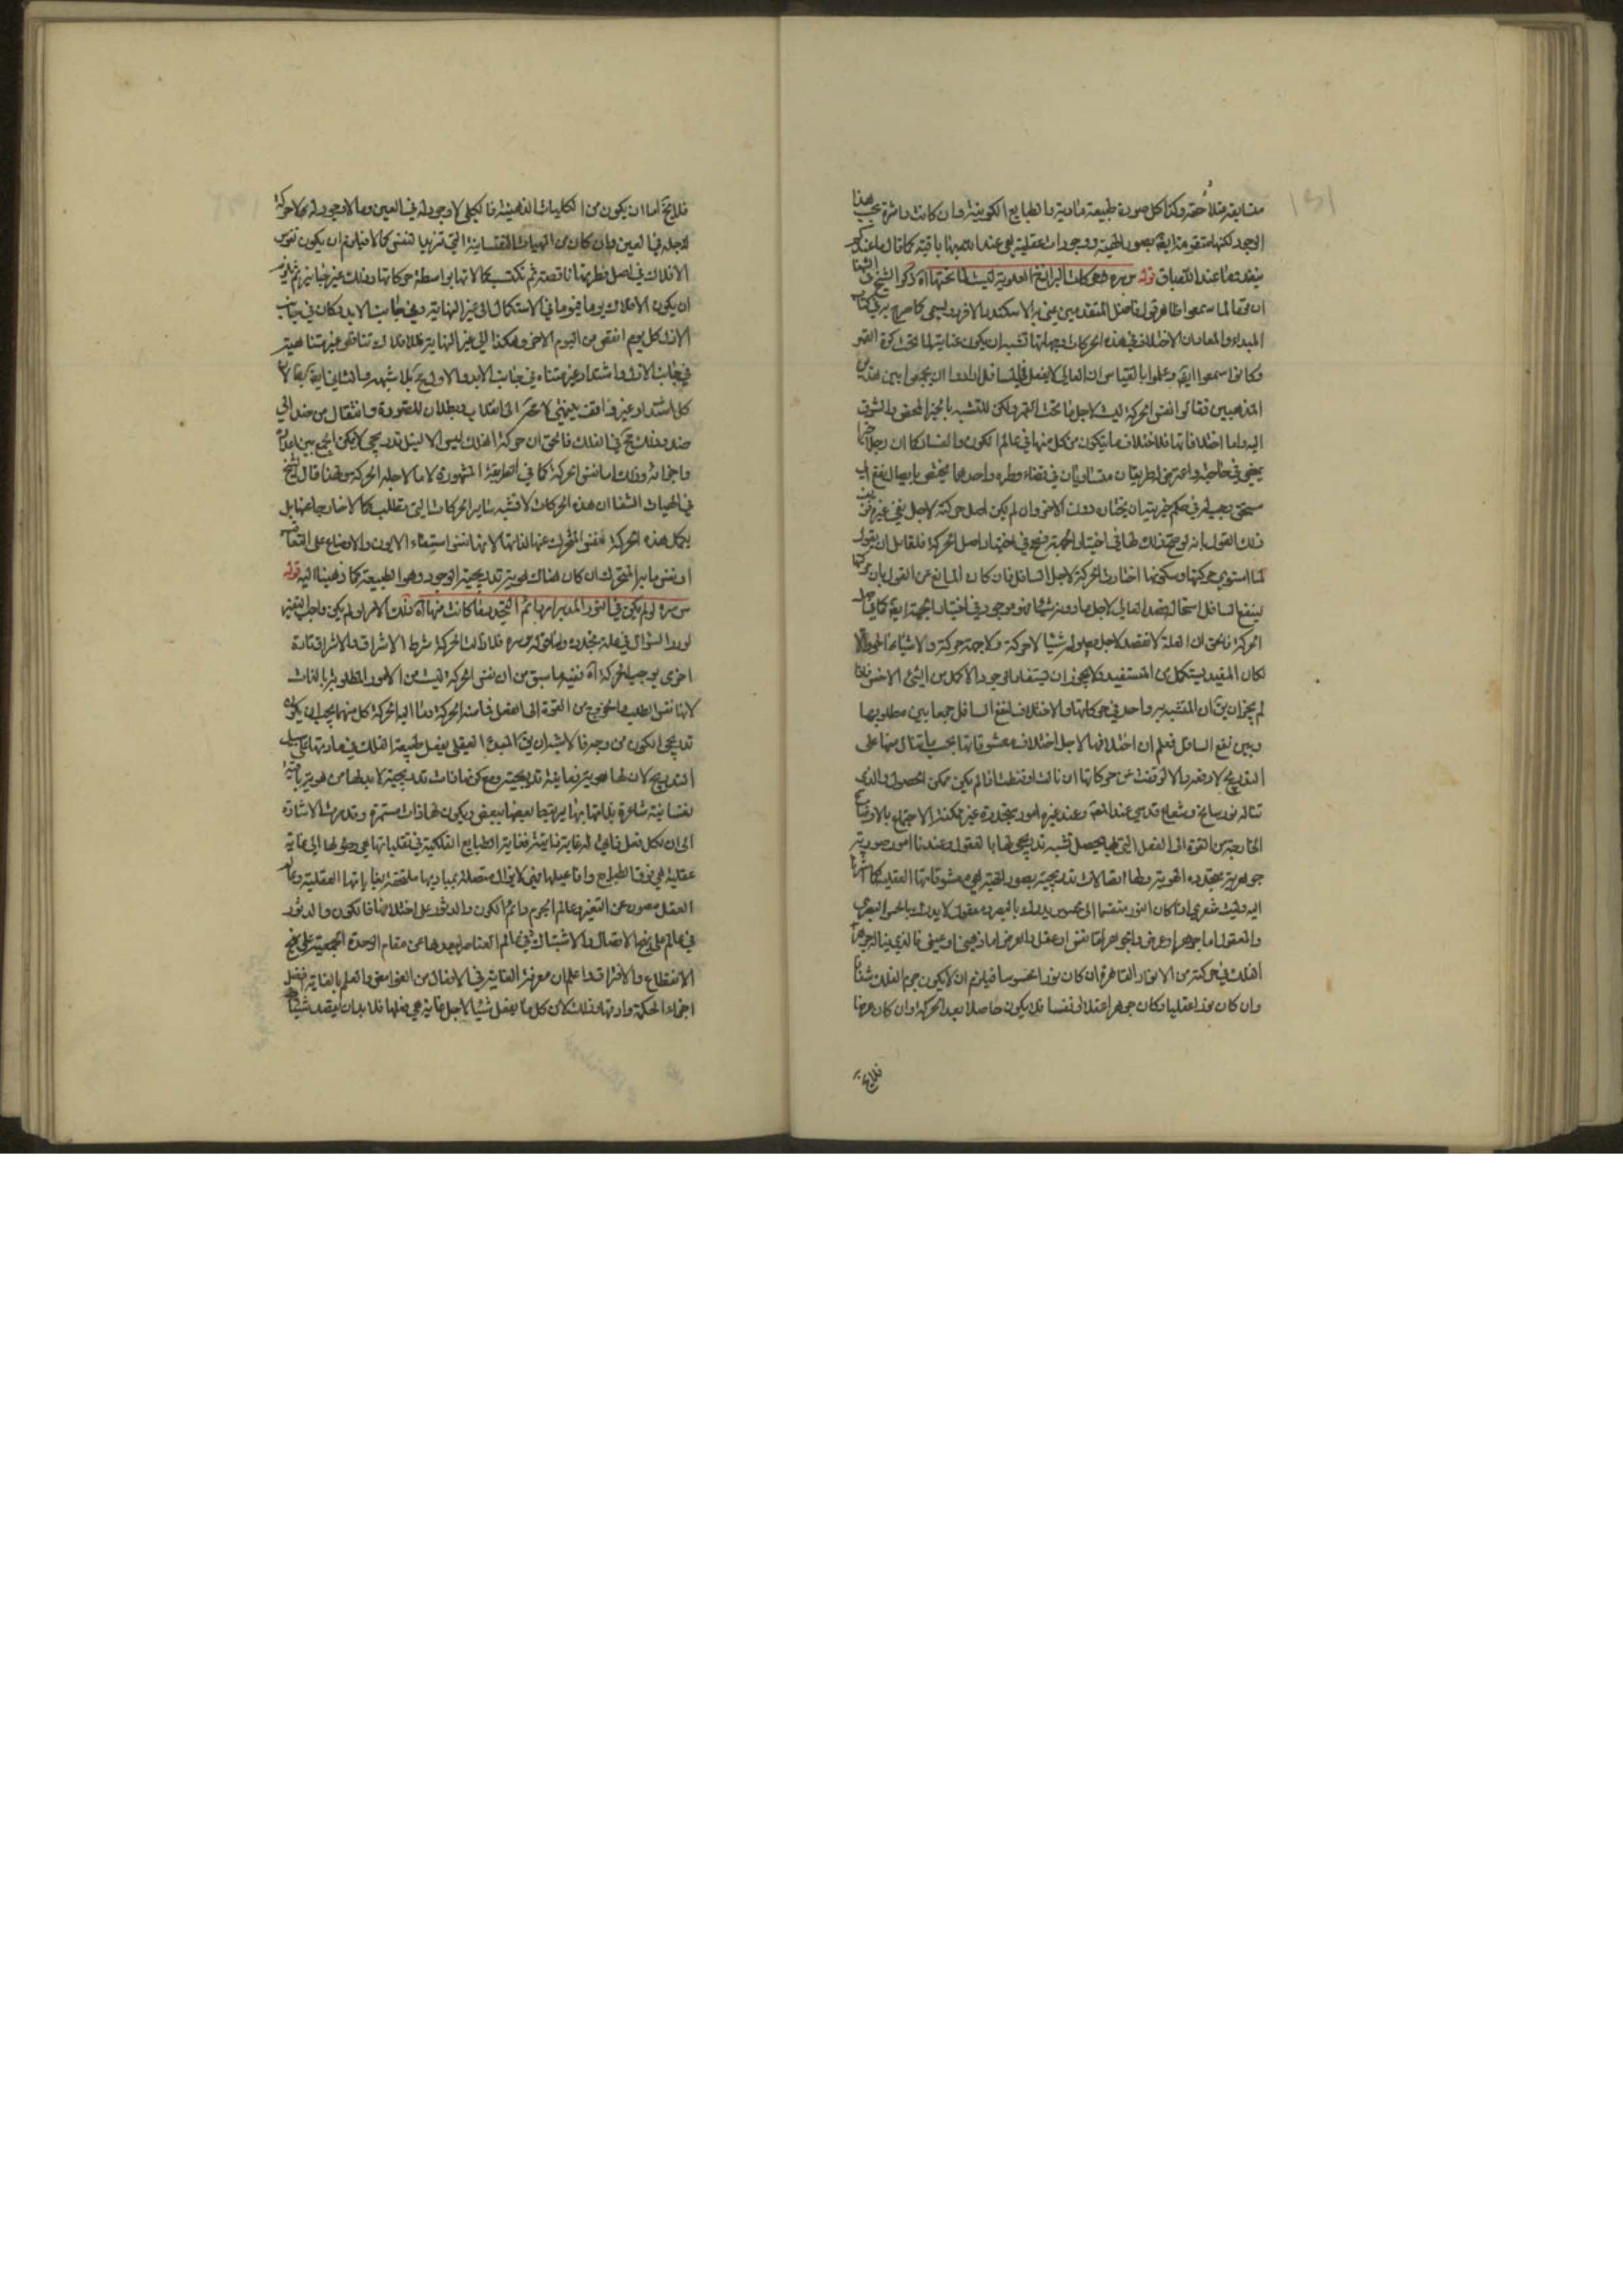 متشابهة متلاحقة وكذا كل صورة طبيعية مادية والطبايع الكونية وان كانت داثرة بحسب هذا
الوجود لكنها متفقة بصور الهية ووجودات عقلية هي عند الله باقية كما قال ما عندكم
ينفد وما عند الله باق قوله س سره وحركات البرازخ العلوية ليست لما تحتها آه ذكر الشيخ في الشفا
ان قوما لما سمعوا ظاهر قول فاضل المتقدمين يعني به الاسكندر الافروديسي كما صرح به في كتاب
المبداء والمعاد ان الاختلاف في هذه الحركات وجهاتها تشبه ان يكون عناية لما تحت كرة القمر
وكانوا سمعوا ايضا وعلموا بالقياس ان العالي لا يفعل للسافل ارادوا ان يجمعوا بين هذين
المذهبين فقالوا نفس الحركة ليست لاجل ما تحت القمر ولكن للتشبه بالخير المحض والشوق
اليه واما اختلافاتها فلاختلاف ما يتكون من كل منها في عالم الكون والفساد كما ان رجلا خيرا
يمضي في حاجته واعترض له طريقان متساويان في قضاء وطره واحدهما يختص بايصال نفع الى
مستحق وجب له في حكم خيريته ان يختار دون الاخر وان لم يكن اصل حركته لاجل نفع غيره
ذلك القول بانه لو صح ذلك لها في اختيار الجهة صح في اختيار اصل الحركة فلقائل ان يقول
لما استوى حركتها وسكونها اختارت الحركة لاجل السافل فان كان المانع عن القول بان حركتها
لينفع السافل استحالة قصد العالي لاجل ما دونه شيئا فهو موجود في اختيار الجهة ايضا كما في اصل
الحركة فالحق ان العلة لا تقصد لاجل معلوله شيئا لا حركة ولا جهة حركة ولا شيئا آخر والا
لكان المفيد يستكمل من المستفيد ولا يجوز ان يستفاد الوجود الاكمل من الشئ الاخس
لم يجز ان يق ان المتشبه به واحد في حركاتها والاختلاف لنفع السافل جمعا بين مطلوبها
وبين نفع السافل فعلم ان اختلافها لاجل اختلاف معشوقاتها
التدريج لا دفعة والا لوقفت عن حركاتها ان نالت او قنطت اذا لم يكن ممكن الحصول والذي
تناله نور سانح وشعاع قدسي عند المص وعند غيره امور متجددة غير ممكنة الاجتماع بالاوضاع
الخارجة من القوة الى الفعل التي بها يحصل تشبه تدريجي لها بالعقول وعندنا امور صورية
جوهرية متجددة الهوية ولها اتصالات تدريجية بصور الهية هي معشوقاتها العقلية كما اشرنا
اليه وليت شعري اذا كان النور منقسما الى محسوس يدرك بالبصر ومعقول لا يدرك بالحس البصري
والمعقول اما جوهر او عرض والجوهر اما نفس او عقل والعرض اما ذهني او عيني فالذي يناله جوهر
الفلك في حركته من الانوار القاهرة ان كان نورا محسوسا فيلزم ان لا يكون جرم الفلك شفافا
وان كان نورا عقليا وكان جوهرا عقلا او نفسا فلا يكون حاصلا بعد الحركة وان كان عرضا
فلا يخ
فلا يخ اما ان يكون من الكليات الذهنية فالكلي لا وجود له في العين وما لا وجود له فلا حركة
لاجله في العين وان كان من الهيئات النفسانية التي تزيد النفس كمالا فيلزم ان يكون نفوس
الافلاك في اصل فطرتها ناقصة ثم تكتسب كمالاتها بواسطة حركاتها وذلك غير جايز ثم يلزم
ان يكون الافلاك يوما فيوما في الاستكمال الى غير النهاية وفي جانب الابد وكان في جانب
الازل كل يوم انقص من اليوم الاخر وهكذا الى غير النهاية فللافلاك تناقص غير متناهية
في جانب الازل واشتداد غير متناه في جانب الابد والاول مح بلا شبهه والثاني ايضا كذا لان
كل اشتداد غير واقف ينتهي لا محة الى انقلاب وبطلان للصورة وانتقال من ضد الى
ضد وذلك مح في الفلك فالحق ان حركة الفلك ليس الا لنيل تدريجي لا يمكن الجمع بين اعداده
واجزائه وذلك اما نفس الحركة كما في الطريقة المشهورة لا ما لاجله الحركة ولهذا قال الشيخ
في الهيات الشفا ان هذه الحركات لا تشبه سائر الحركات التي تطلب كمالا خارجا عنها بل
يكمل هذه الحركة نفس المتحرك عنها لذاتها لانها نفس استبقاء الايون والاوضاع على التعاقب
او نفس ما به المتحرك ان كان هناك هوية تدريجية الوجود وهو الطبيعة كما ذهبنا اليه قوله
س سره لو لم يكن في النور المدبر امر دائم التجدد لما كانت منها آه ذلك الامر لو لم يكن واجب التغير
لورد السؤال في علة تجدده واما قوله س سره فلا زالت الحركة شرط الاشراق والاشراق تارة
اخرى يوجب الحركة آه ففيه ما سبق من ان نفس الحركة ليست من الامور المطلوبة بالذات
لانها نفس الطلب والخروج من القوة الى الفعل فما منه الحركة وما اليه الحركة كل منهما يجب ان يكون
تدريجي الكون من وجه فالاشبه ان يق المبدء العقلي يفعل طبيعة الفلك في مادتها على سبيل
التدريج لان لها هوية زمانية تدريجية ومع كونها ذات تدريجية لا بد لها من هوية باقية
نفسانية شاعرة بذاتها بها يرتبط بعضها ببعض ويكون لها ذات مستمرة وقد مرت الاشارة
الى ان لكل فعل فاعل له غاية ذاتية فغاية الطبايع الفلكية في تقلباتها هي وصولها الى غاية
عقلية هي فوق الطباع وافاعيلها فهي لا يزال متصلة بمباديها ملتحقة بغاياتها العقلية وعالم
العقل مصون عن التغير وعالم الجرم دائم الكون والدثور على اختلافها فالكون والدثور
في عالم الافلاك على نهج الاتصال والاشتباك وفي عالم العناصر لبعدها عن مقام الوحدة الجمعية على نهج
الانقطاع والافتراق واعلم ان معرفة الغاية في الافعال من الغوامض والعلم بالغاية افضل
اجزاء الحكمة وادقها وذلك لان كل ما يفعل شيئا لاجل غاية هي فعلها فلا بد ان يقصد شيئا